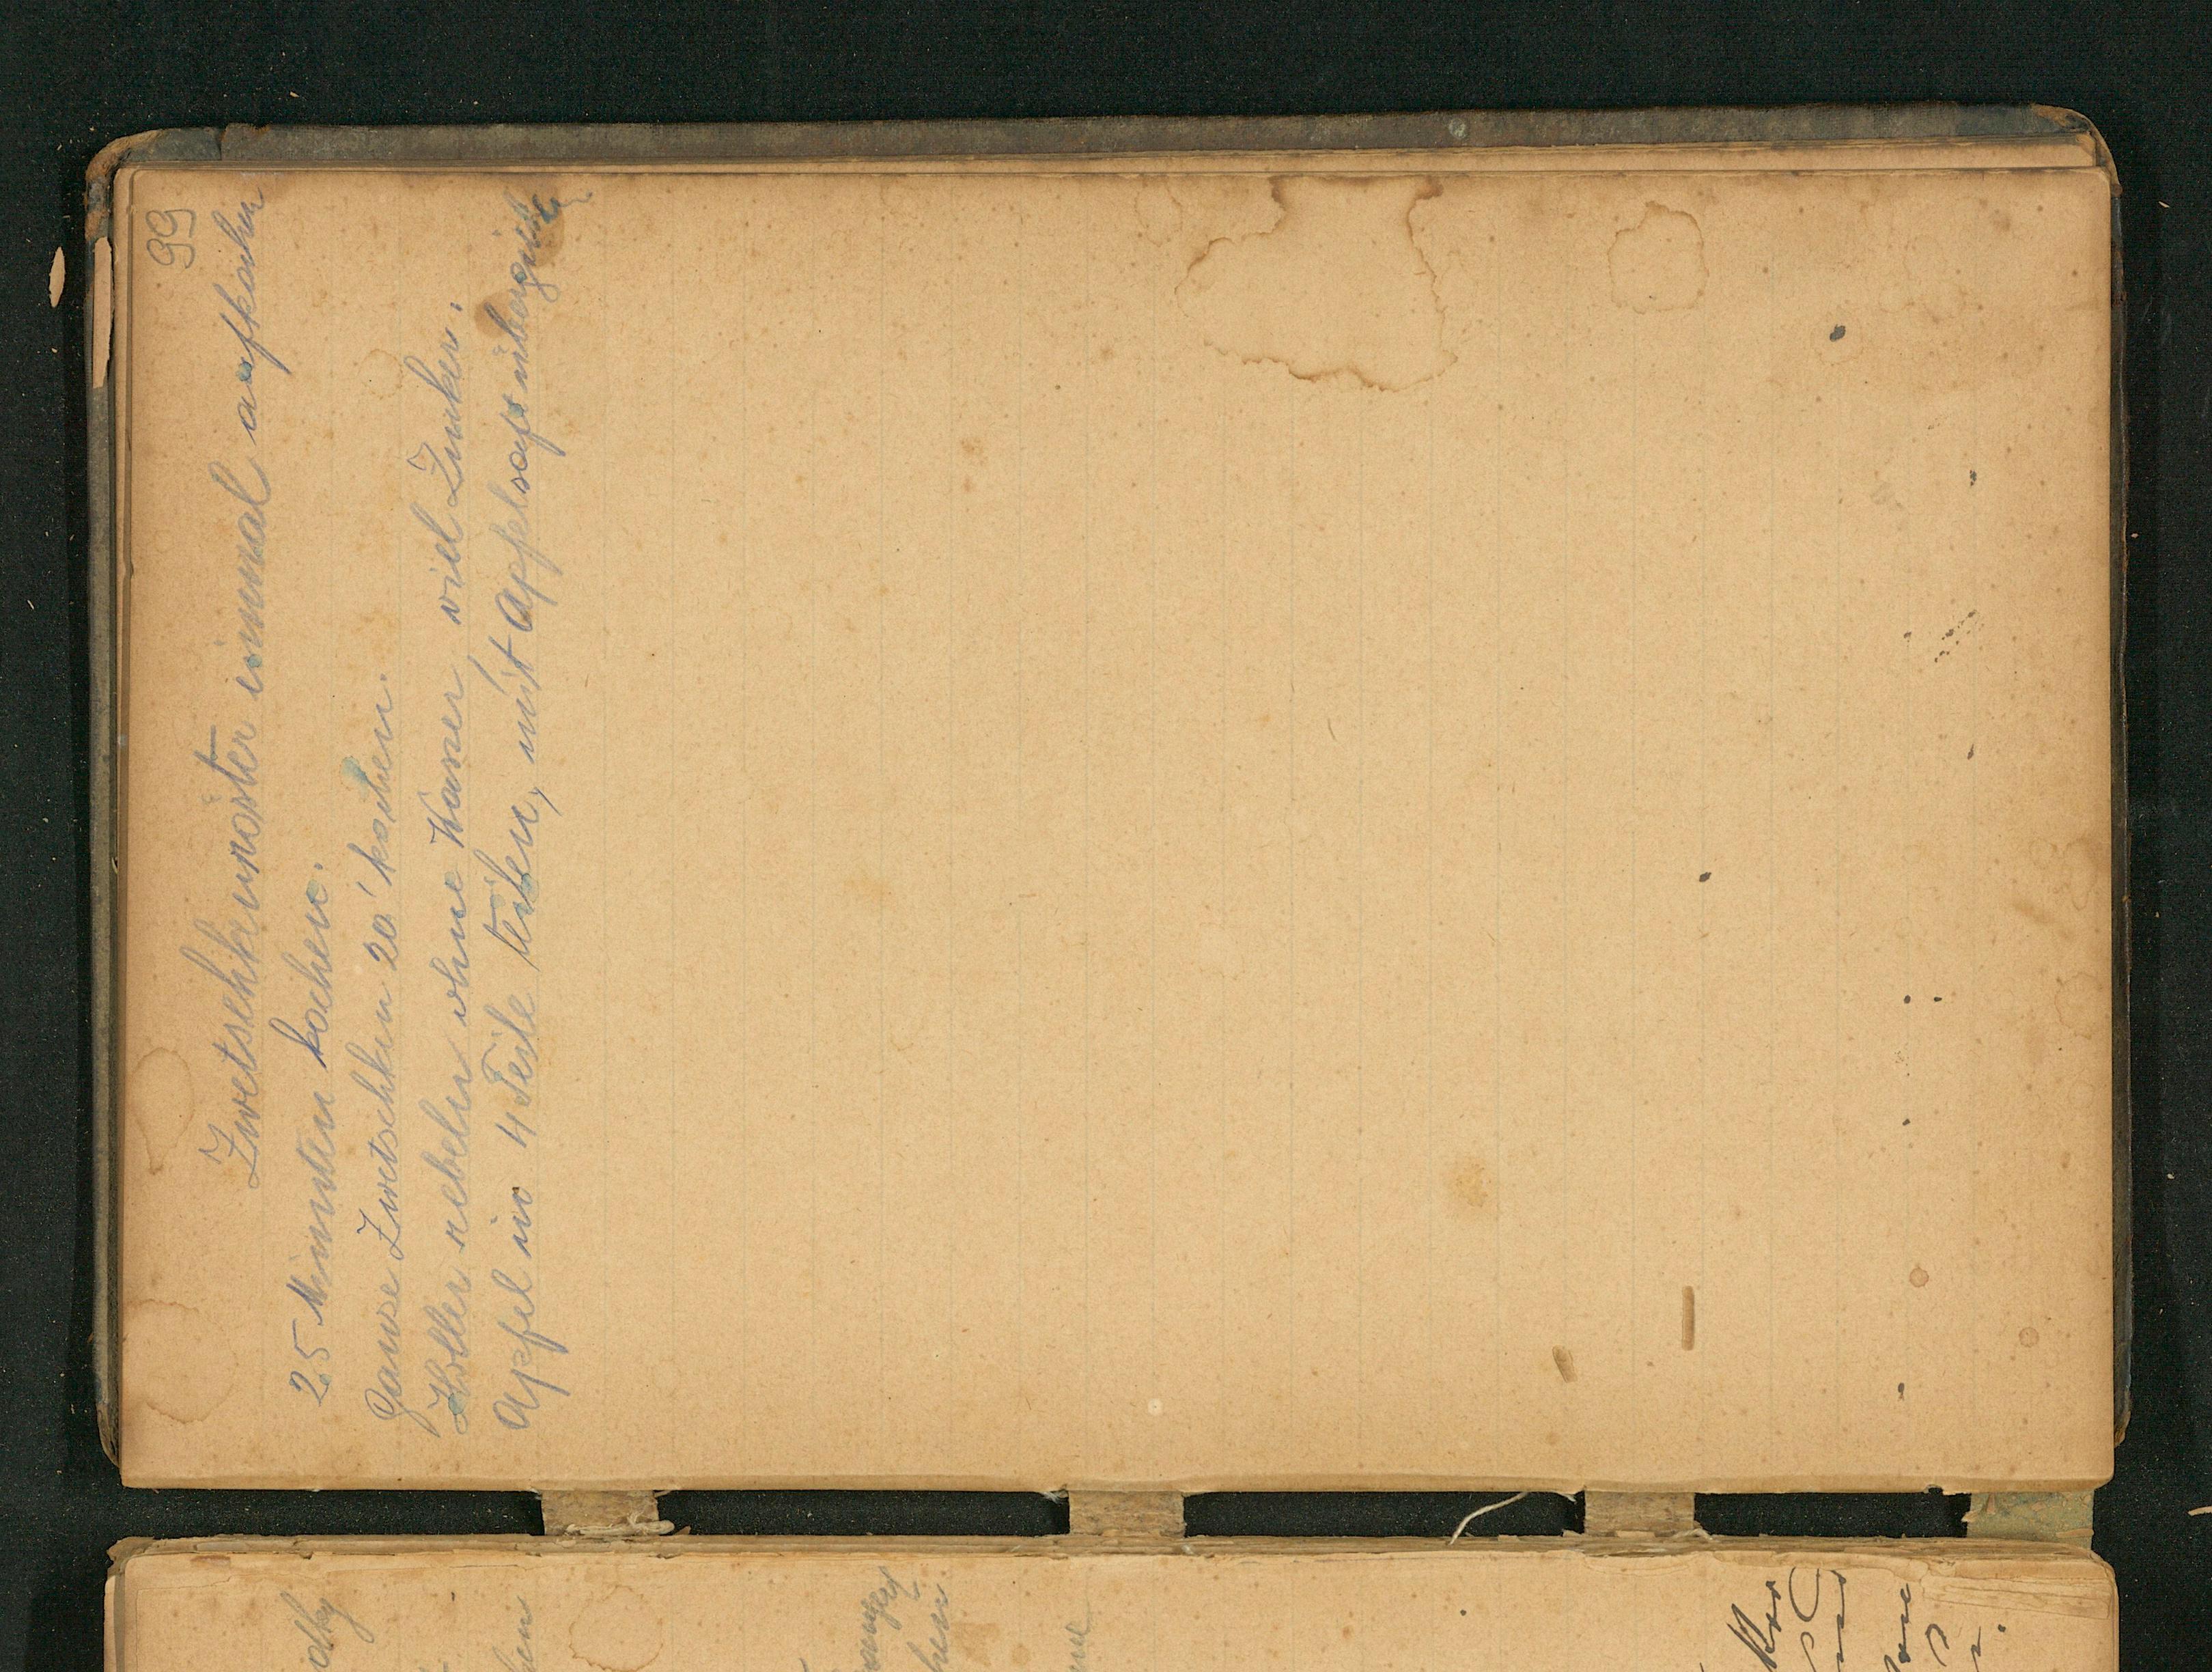 99
Zwetschkenröster einmal aufkochen
25 Minuten kochen.
Ganze Zwetschken 20' kochen.
Holler rebeln ohne Wasser viel Zucker.
Apfel in 4 Teile teilen, mit Apfelsaft übergießen